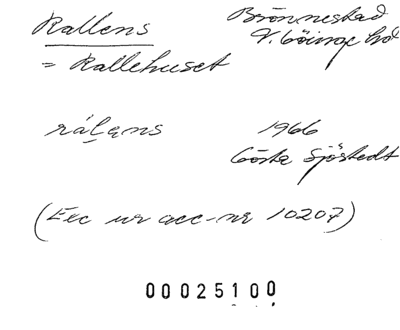 Rallens
= Rallehuset
Brönnestad
V. Göinge hd
rálens
1966
Gösta Sjöstedt
(Exc ur acc-nr 10207)
00025100